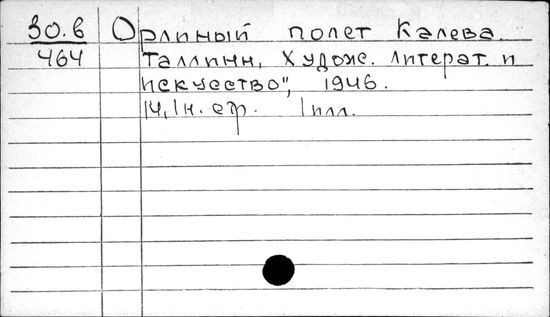 30.6 Орлиный полет Калева.
464 Таллинн, Худож. литерат. и
искусство", 1946.
14, 1 н. стр. 1 илл.